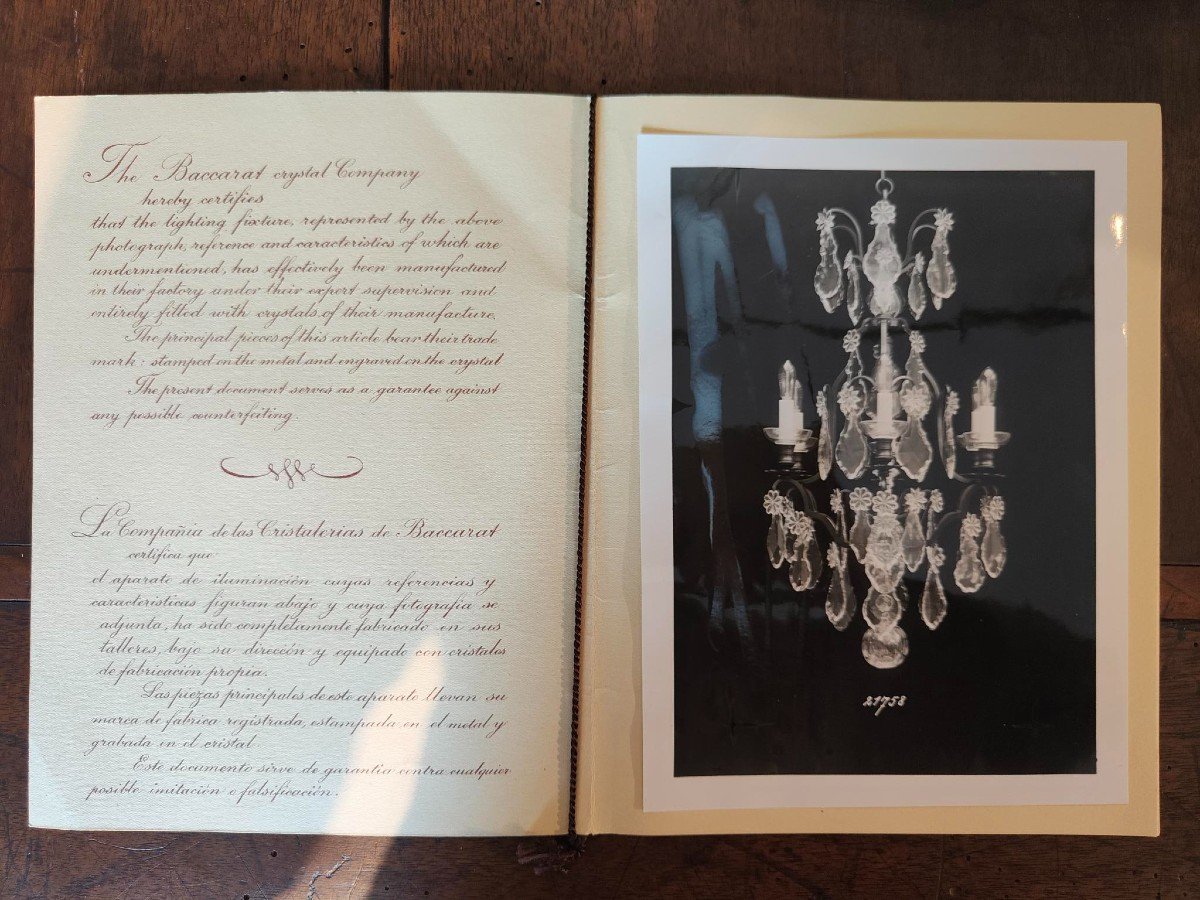 The Baccarat crystal Company
hereby certifies
that the lighting fixture, represented by the above
photograph, reference and caracteristics of which are
undermentioned, has effectively been manufactured
in their factory under their expert supervision and
entirely fitted with crystals of their manufacture.
The principal pieces of this article bear their trade
mark : stamped on the metal and engraved on the crystal
The present document serves as a garantee against
any possible counterfeiting.
La Compañia de las Cristalerias de Baccarat
certifica que:
el aparato de iluminación cuyas referencias y
caracteristicas figuran abajo y cuya fotografia se
adjunta, ha sido completamente fabricado en sus
talleres, bajo su dirección y equipado con cristales
de fabricación propia.
Las piezas principales de este aparato llevan su
marca de fabrica registrada, estampada en el metal y
grabada en el cristal
Este documento sirve de garantia contra cualquier
posible imitación o falsificación.
21758